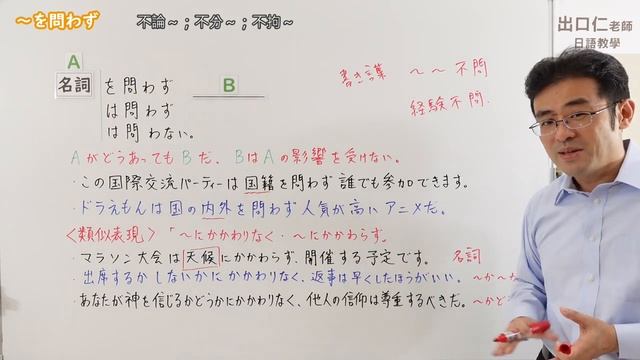 ～を問わず
不論～；不分～；不拘～
出口仁老師
日語教學
A
名詞 を問わず B
は問わず
は問わない。
書き言葉 ～～不問
経験不問.
Aがどうあっても Bだ、BはAの影響を受けない。
・この国際交流パーティーは国籍を問わず誰でも参加できます。
・ドラえもんは国の内外を問わず人気が高いアニメだ。
〈類似表現〉「～にかかわりなく・～にかかわらず。
・マラソン大会は天候にかかわらず、開催する予定です。 名詞
・出席するかしないかにかかわりなく、返事は早くしたほうがいい。 ～か～
・あなたが神を信じるかどうかにかかわりなく、他人の信仰は尊重するべきだ。 ～かど